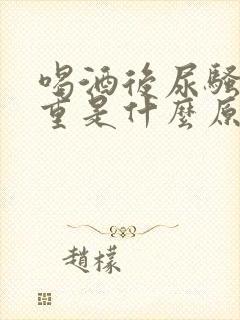 喝酒後尿騷
重是什麼原
趙檬